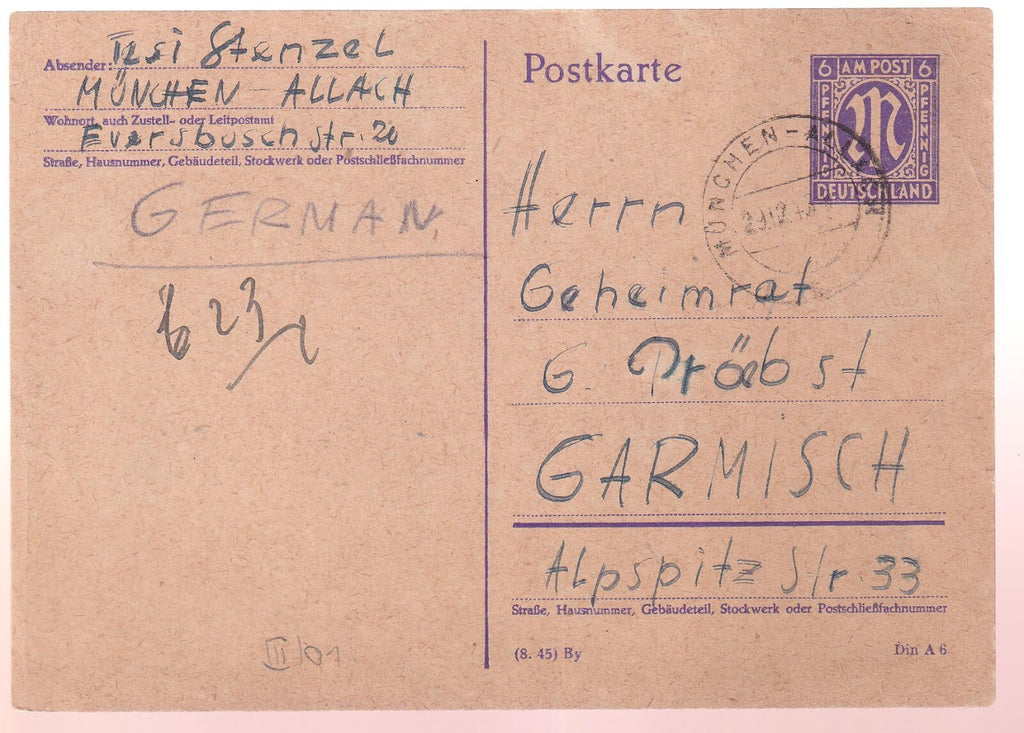 Absender: Resi Stenzel
MÜNCHEN - ALLACH
Wohnort, auch Zustell- oder Leitpostamt
Eversbusch str. 20
Straße, Hausnummer, Gebäudeteil, Stockwerk oder Postschließfachnummer
GERMAN.
623/
Postkarte
6 AM POST 6
PFENNIG
M
PFENNIG
DEUTSCHLAND
MÜNCHEN-
Herrn
Geheimrat
G. Präbst
GARMISCH
Alpspitz Str. 33
Straße, Hausnummer, Gebäudeteil, Stockwerk oder Postschließfachnummer
(8. 45) By
Din A 6
III/01